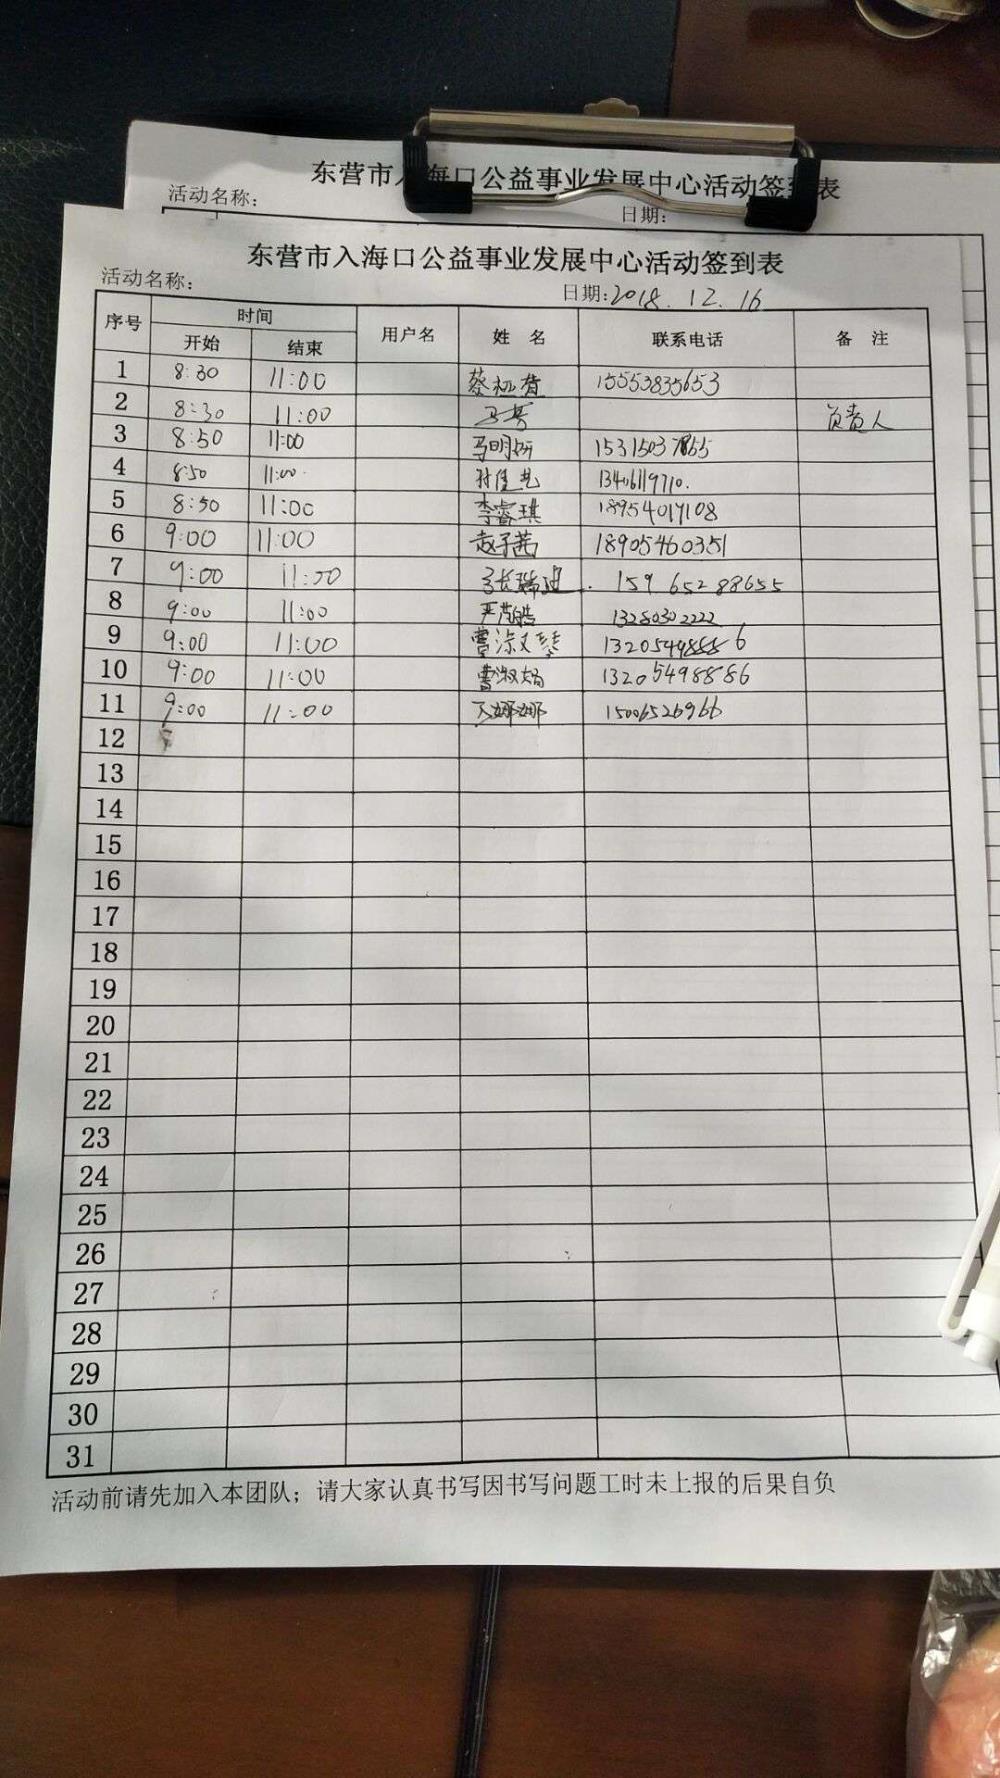 东营市入海口公益事业发展中心活动签到表
活动名称: 日期:
东营市入海口公益事业发展中心活动签到表
活动名称: 日期:2018.12.16
序号 时间 用户名 姓 名 联系电话 备 注
开始 结束
1 8:30 11:00 15553835653
2 8:30 11:00 负责人
3 8:50 11:00 马明妍
4 8:50 11:00 13406119710.
5 8:50 11:00 李睿琪 18954017108
6 9:00 11:00 赵子茜 18905460351
7 9:00 11:00 张瑞迪 15965288655
8 9:00 11:00 13280302222
9 9:00 11:00
10 9:00 11:00 13205498886
11 9:00 11:00 15006526966
12
13
14
15
16
17
18
19
20
21
22
23
24
25
26
27
28
29
30
31
活动前请先加入本团队；请大家认真书写因书写问题工时未上报的后果自负